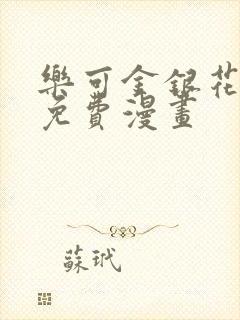 樂可金銀花
免費漫畫
蘇玳